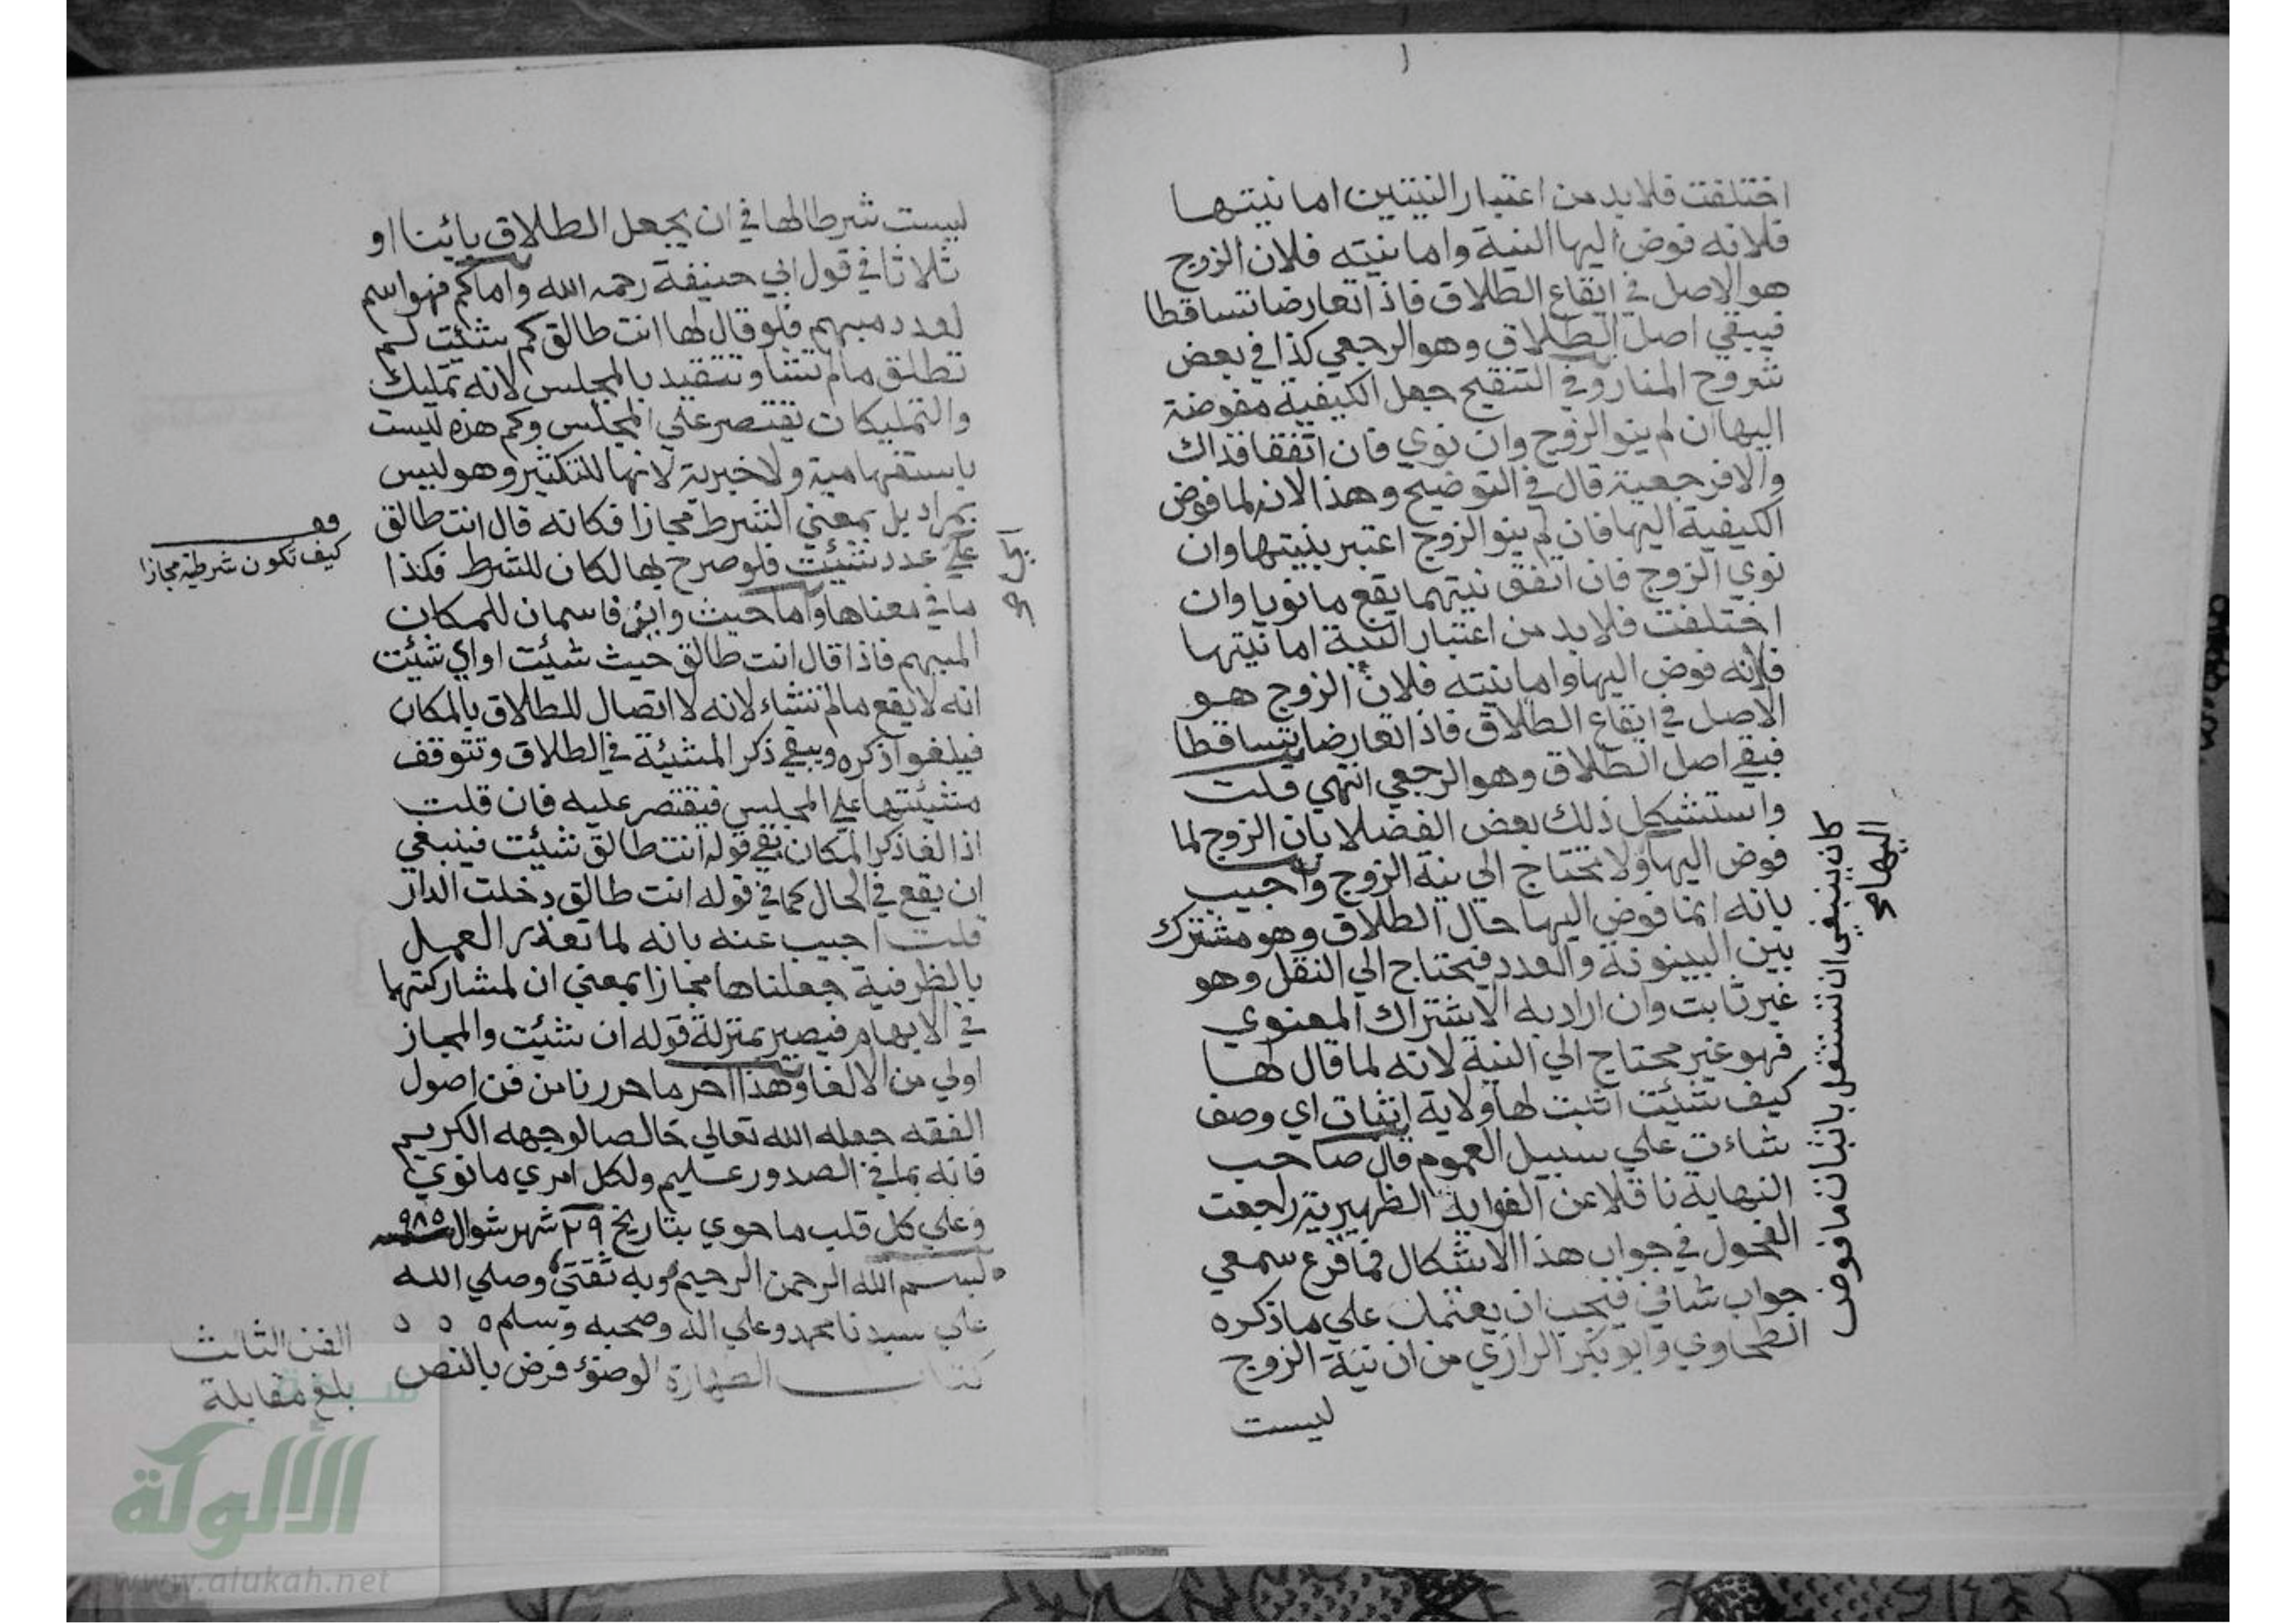 اختلفت فلا بد من اعتبار النيتين اما نيتها
فلانه فوض اليها النية واما نيته فلان الزوج
هو الاصل في ايقاع الطلاق فاذا تعارضا تساقطا
فيبقي اصل الطلاق وهو الرجعي كذا في بعض
شروح المنار وفي التنقيح جعل الكيفية مفوضة
اليها ان لم ينو الزوج وان نوي فان اتفقا فذاك
والا فرجعية قال في التوضيح وهذا لانه لما فوض
الكيفية اليها فان لم ينو الزوج اعتبر بنيتها وان
نوي الزوج فان اتفق نيتهما يقع ما نويا وان
اختلفت فلا بد من اعتبار النية اما نيتها
فلانه فوض اليها واما نيته فلان الزوج هو
الاصل في ايقاع الطلاق فاذا تعارضا يتساقطا
فبقي اصل الطلاق وهو الرجعي انتهي قلت
واستشكل ذلك بعض الفضلا بان الزوج لما
فوض اليها ولا يحتاج الي نية الزوج واجيب
بانه انما فوض اليها حال الطلاق وهو مشترك
بين البينونة والعدد فيحتاج الي النقل وهو
غير ثابت وان اراد به الاشتراك المعنوي
فهو غير محتاج الي النية لانه لما قال لها
كيف شئت اثبت لها ولاية اثبات اي وصف
شاءت علي سبيل العموم قال صاحب
النهاية ناقلا عن الفوايد الظهيرية راجعت
الفحول في جواب هذا الاشكال فما قرع سمعي
جواب شافي فيجب ان يعتمد علي ما ذكره
الطحاوي وابو بكر الرازي من ان نية الزوج
ليست
كان ينبغي ان تستقل باثبات ما فوض
اليها صح
ليست شرطا لها في ان يجعل الطلاق بائنا او
ثلاثا في قول ابي حنيفة رحمه الله واما كم فهو اسم
لعدد مبهم فلو قال لها انت طالق كم شئت لم
تطلق ما لم تشا وتتقيد بالمجلس لانه تمليك
والتمليكات تقتصر علي المجلس وكم هذه ليست
باستفهامية ولا خبرية لانها للتكثير وهو ليس
بمراد بل بمعني الشرط مجازا فكانه قال انت طالق
علي عدد شئت فلو صرح بها لكان للشرط فكذا
ما في معناها واما حيث واين فاسمان للمكان
المبهم فاذا قال انت طالق حيث شئت او اي شئت
انه لا يقع ما لم تشاء لانه لا اتصال للطلاق بالمكان
فيلغوا ذكره ويبقي ذكر المشيئة في الطلاق وتتوقف
مشيئتها علي المجلس فيقتصر عليه فان قلت
اذا لغا ذكر المكان بقي قوله انت طالق شئت فينبغي
ان يقع في الحال كما في قوله انت طالق دخلت الدار
قلت اجيب عنه بانه لما تعذر العمل
بالظرفية جعلناها مجازا بمعني ان لمشاركتها
في الابهام فيصير بمنزلة قوله ان شئت والمجاز
اولي من الالغا وهذا اخر ما حررنا من فن اصول
الفقه جعله الله تعالي خالصا لوجهه الكريم
فانه بما في الصدور عليم ولكل امري ما نوي
وعلي كل قلب ما حوي بتاريخ ٢٩ شهر شوال سنة ٩٨٥
بسم الله الرحمن الرحيم وبه ثقتي وصلي الله
علي سيدنا محمد وعلي اله وصحبه وسلم
كتاب الطهارة الوضوء فرض بالنص
كيف تكون شرطية مجازا
الفن الثالث
بلغ مقابلة
الألوكة
www.alukah.net